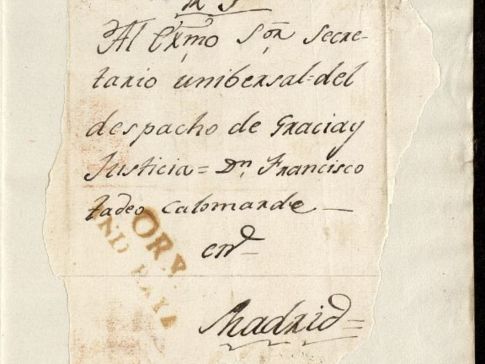 Al Exmo Sor Secre-
tario unibersal=del
despacho de Gracia y
Justicia= Dn, Francisco
tadeo Calomarde_
en
Madrid=